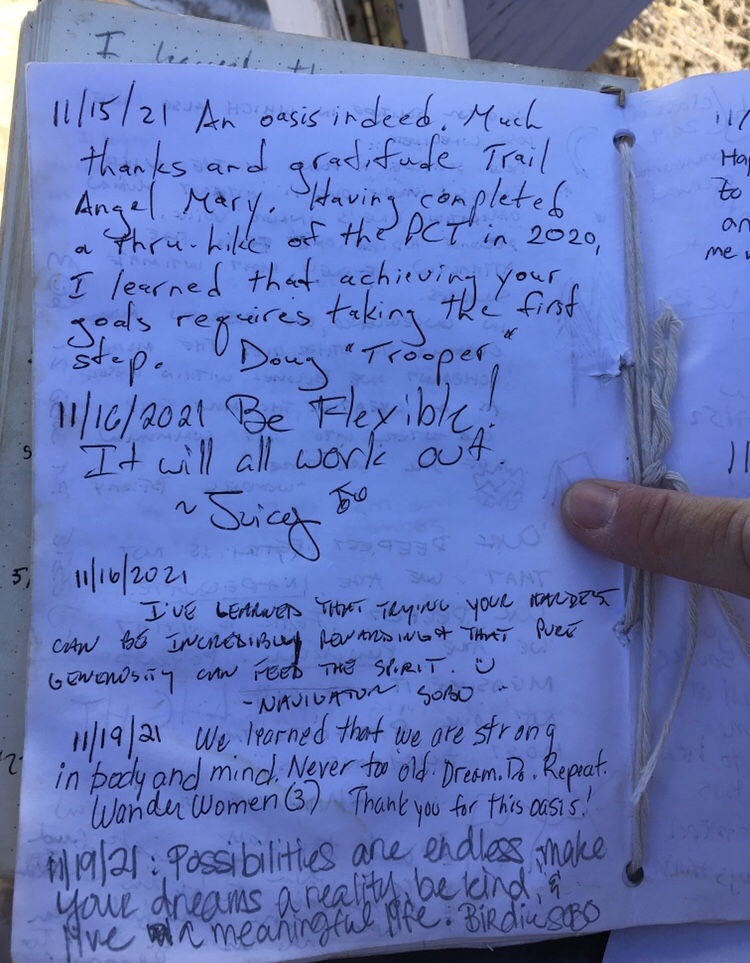 I learned th
11/15/21 An oasis indeed. Much
thanks and gratitude Trail
Angel Mary. Having completed
a Thru-hike of the PCT in 2020,
I learned that achieving your
goals requires taking the first
step. Doug "Trooper"
11/16/2021 Be Flexible!
It will all work out.
~ Juicy
11/16/2021
I'VE LEARNED THAT TRYING YOUR HARDEST
CAN BE INCREDIBLY REWARDING & THAT PURE
GENEROSITY CAN FEED THE SPIRIT.
- NAVIGATOR SOBO -
11/19/21 We learned that we are strong
in body and mind. Never too old. Dream. Do. Repeat.
Wander Women (3) Thank you for this oasis!
11/19/21: Possibilities are endless, make
your dreams a reality, be kind, &
live a meaningful life. Birdie SOBO
11/
Hap
to
an
me
11